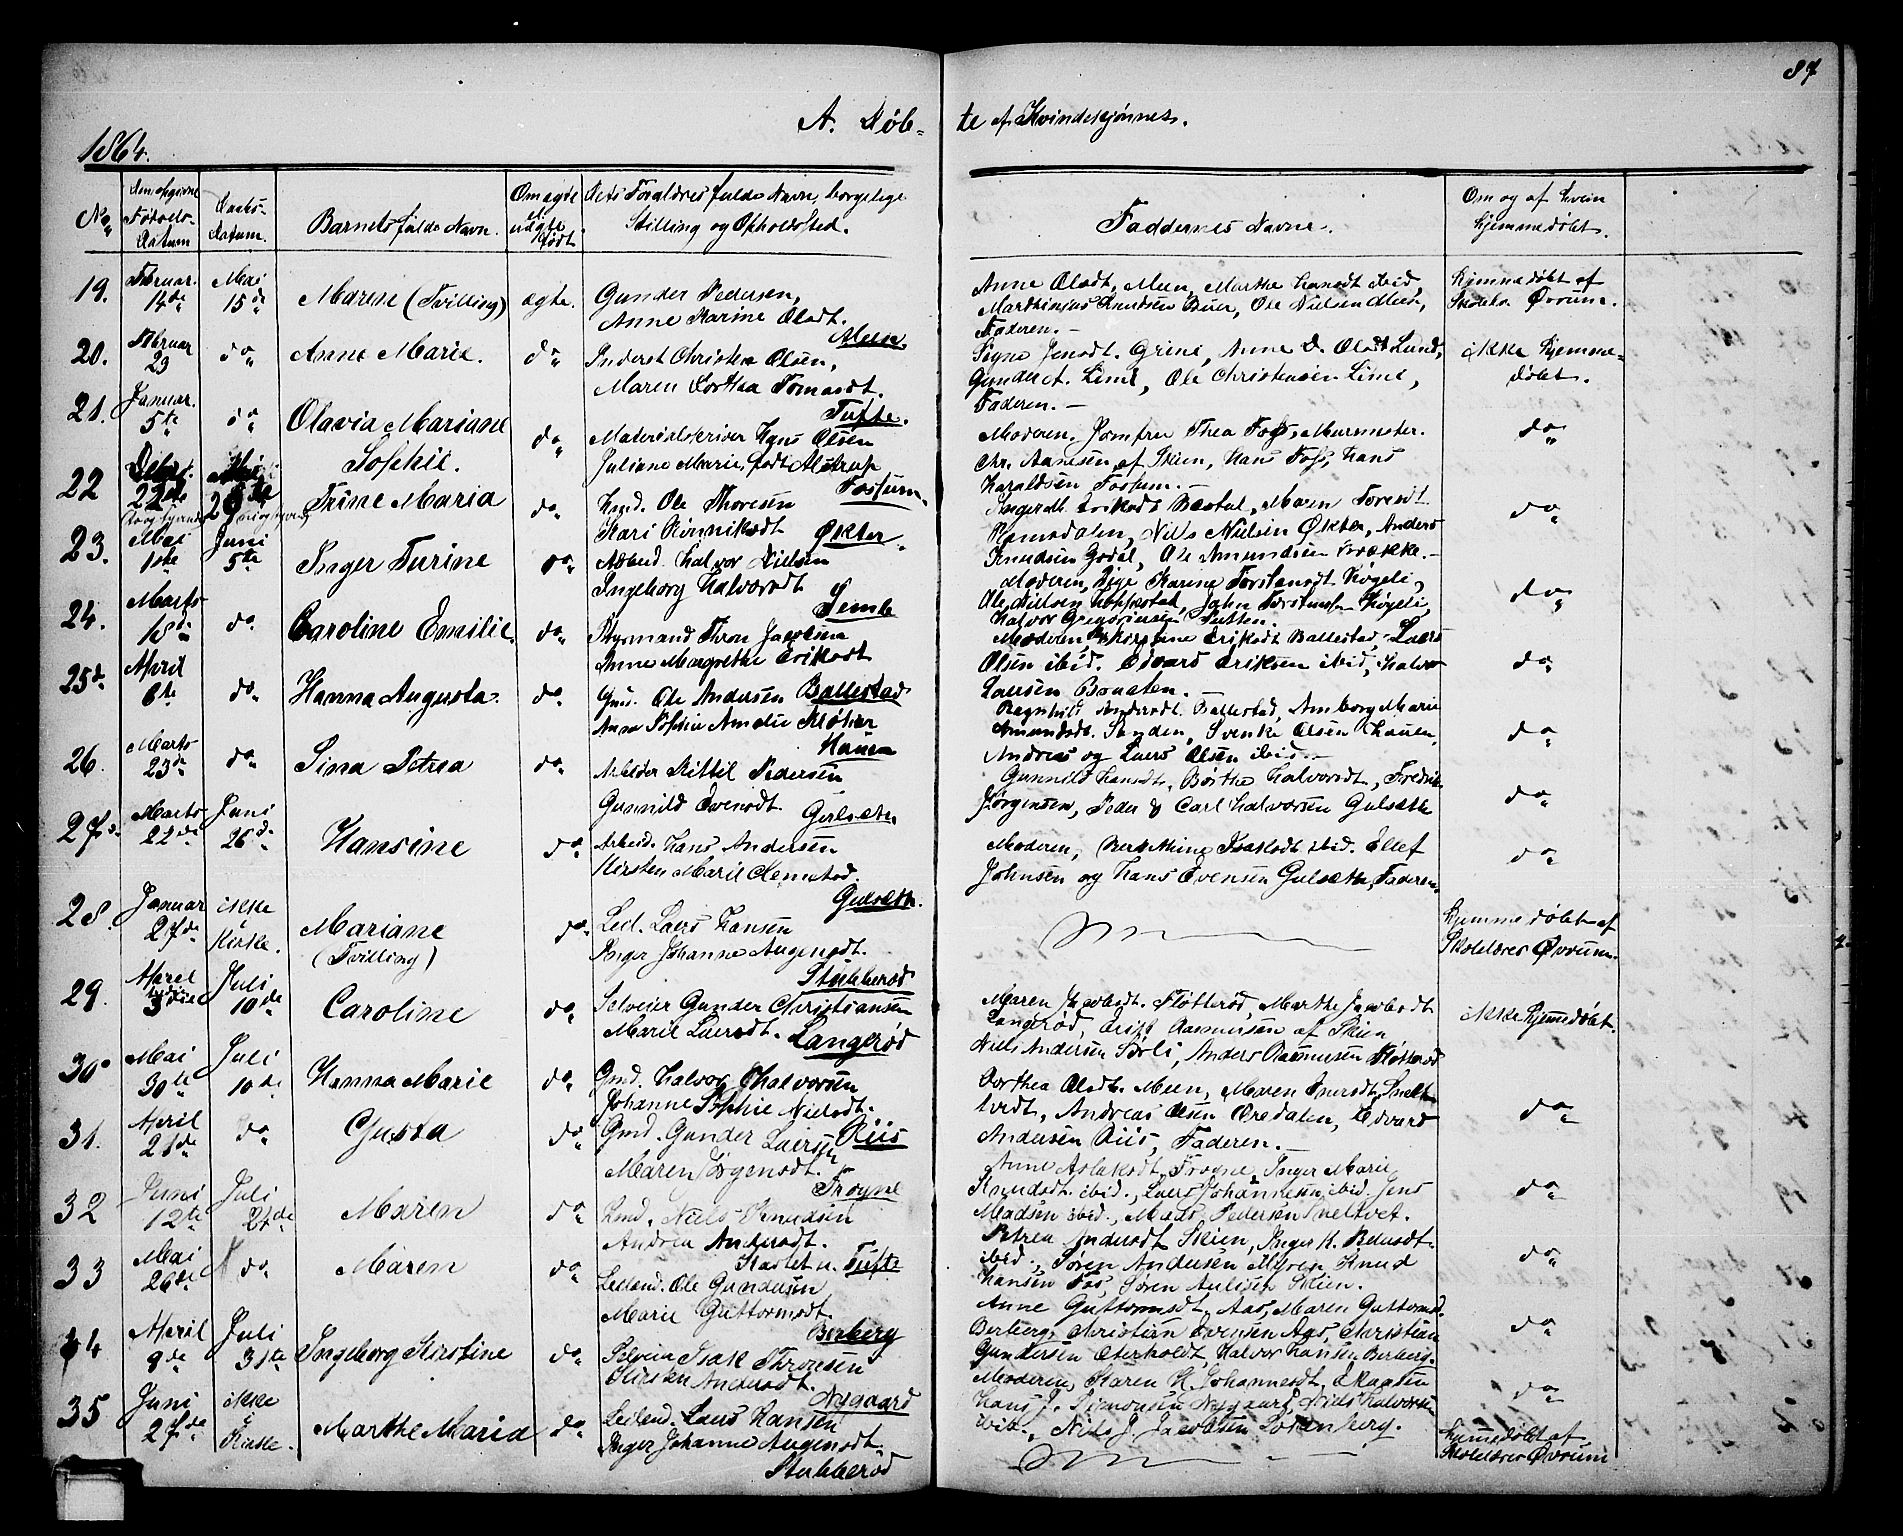 87
A. Døb-
te af Kvindekjønnet.
1864.
No
Den opgivne Fødsels-Datum
Daabs-Datum.
Barnets fulde Navn.
Om ægte el. uægte født
Dets Forældres fulde Navn, borgelige Stilling og Opholdsted.
Faddernes Navne.
Om og af hvem hjemmedøbt.
19. Februar 14de Mai 15de Maren (Tvilling) ægte. Gunder Pedersen,
Anne Karine Olsdt. Meen.
Anne Olsdt. Meen, Marthe Hansdt ibid,
Marthinius Knudsen Buer, Ole Nielsen Meen,
Faderen.-
Hjemmedøbt af
Skoleh. Øvrum.
20. Februar 23 do Anne Marie. do Inderst Christen Olsen,
Maren Dorthea Tomasdt. Tufte.
Signe Jensdt. Grini, Anne D. Olsdt Lund,
Gunder A. Limi, Ole Christensen Limi,
Faderen.-
ikke hjemme-
døbt.
21. Januar 5te do Olavia Mariane
Sophie. do Materialskriver Hans Olsen
Juliane Marie, født Alstrup Fossum.
Moderen. Jomfru Thea Foss, Murmester.
Chr. Aanesen af Skien, Hans Foss, Hans
Haraldsen Fossum.-
do
22 22de Trine Maria do Hmd. Ole Thoresen
Kari Kinnikedt Økter.
Ramsdalen, Nils Nielsen Økter, Anders
Knudsen Godal, Ole Amundsen Brække.-
do
23. Mai 1ste Juni 5te Inger Turine do Halvor Nielsen
Ingeborg Halvorsdt Semb
Moderen, Pige Karine Torstensdt Høgeli,
Ole Nielsen Kopstad, John Torstensen Høgeli,
Halvor Gregoriusen Tuften.
do
24. Marts 18de do Caroline Emilie. do Thron Jacobsen
Anne Margrethe Eriksdt Ballestad
Moderen, Eriksdt Ballestad, Laers
Olsen ibid. Edvard Eriksen ibid, Halvor
Laersen Bonaten.
do
25de April 6te do Hanna Augusta. do Gmd. Ole Andersen
Anna Sophie Amalie Hauen
Ragnhild Andersdt. Ballestad, Amborg Marie
Amundsdt. Sanden, Svenke Olsen Hauen,
Andreas og Laers Olsen ibid.-
do
26. Marts 23de do Sina Petrea do Arbeider Kittil Pedersen
Gunnild Evensdt. Gulseth.
Gunnild Hansdt, Berthe Halvorsdt, Fredrik
Jørgensen, Peder & Carl Halvorsen Gulseth
do
27de Marts 22de Juni 26de Hansine do Arbeid. Hans Andersen
Kirsten Marie Clemetsd. Gulseth.
Moderen, Berthine Isaksdt ibid. Ellef
Johnsen og Hans Evensen Gulseth, Faderen.
do
28. Januar 27de ikke i Kirke. Mariane
(Tvilling) do Leil. Laers Hansen
Inger Johanne Augensdt. Stubberød
Hjemmedøbt af
Skolelærer Øvrum.
29. April 3die Juli 10de Caroline do Selveier Gunder Christiansen
Marie Laersdt. Langerød
Maren Jacobsdt. Fløtterød, Marthe Jacobsdt
Langerød, Erik Rasmussen af Skien
Niels Andersen Sørli, Anders Rasmussen Fløtterød
ikke hjemmedøbt.
30 Mai 30te Juli 10de Hanna Marie do Gmd. Halvor Halvorsen
Johanne Sophie Nielsdt. Riis
Dorthea Olsdt. Meen, Maren
Andreas Olsen Oredalen, Edvard
Andersen Riis, Faderen.-
do
31. April 21de do Gusta do Gmd. Gunder Laersen
Maren Jørgensdt. Frogne
Anne Aslaksdt, Frogne, Inger Marie
Knudsdt. ibid., Laers Johannesen ibid. Jens
Madsen ibid., Mads Pedersen Meltvet.
do
32 Juni 12te Juli 24de Maren do Hmd. Niels Knudsen
Andrea Andersdt. Kastet u. Tufte
Petrea Andersdt Skien, Inger K. Pedersdt
ibid., Søren Andersen Myren, Knud
Hansen Fos, Søren Aulisen Skien.
do
33 Mai 26de do Maren do Leilend. Ole Gundersen
Marie Guttormsdt. Berberg
Anne Guttormsdt. Aas, Maren Guttormsd.
Berberg, Christian Evensen Aas, Christian
Gundersen Oterholdt, Halvor Hansen Berberg.
do
34 April 9de Juli 31te Ingeborg Kirstine do Selveier Isak Thronsen
Kirsten Andersdt. Nygaard
Moderen, Karen K. Johannesdt Skaaten
Hans J. Simonsen Nygaard, Niels Halvorsen
ibid., Niels J. Jacobsen Lotenberg.
do
35 Juni 27de ikke i Kirke. Marthe Maria do Leilend. Laers Hansen
Inger Johanne Augensdt. Stubberød
Hjemmedøbt af
Skolelærer Øvrum